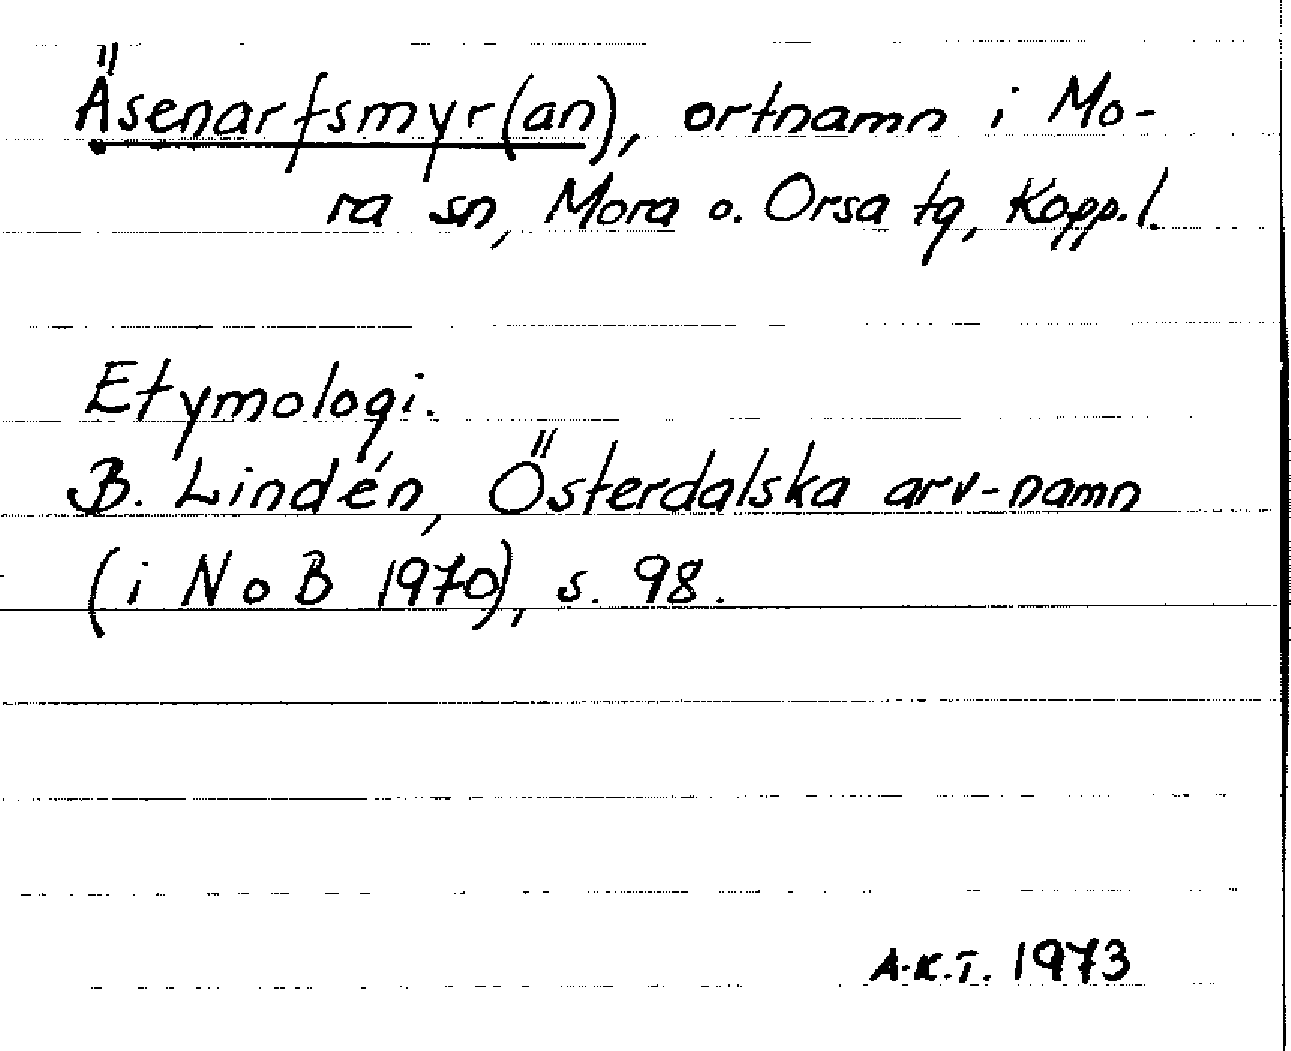 Äsenarfsmyr(an), ortnamn i Mo-
ra sn, Mora o. Orsa tg, Kopp. l.
Etymologi.
B. Lindén, Österdalska arv-namn
(i NoB 1970), s. 98.
A.K.T. 1973